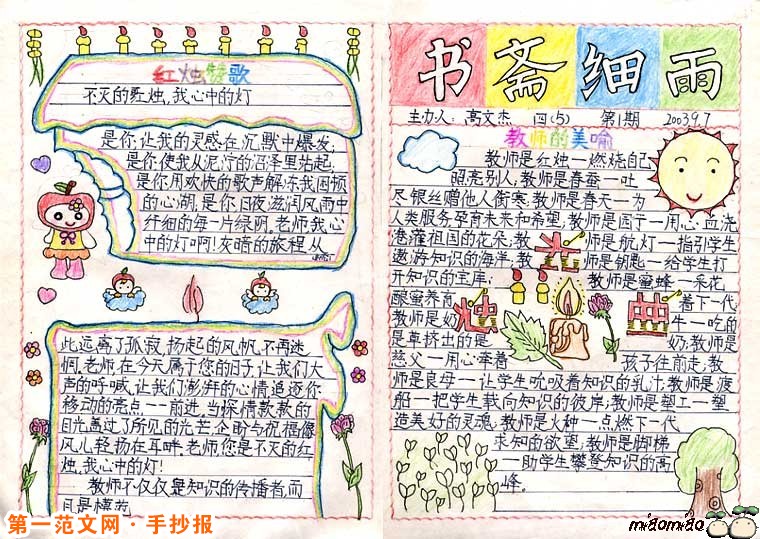 红烛赞歌
不灭的红烛,我心中的灯
是你,让我的灵感在沉默中爆发;
是你,使我从泥泞的沼泽里站起;
是你,用欢快的歌声解冻我困顿
的心湖,是你,日夜滋润风雨中
纤细的每一片绿阴,老师,我心
中的灯啊!灰暗的旅程,从
此远离了孤寂,扬起的风帆,不再迷
惘,老师,在今天属于您的日子,让我们大
声的呼喊,让我们澎湃的心情追逐你
移动的亮点,一一前进,当深情款款的
目光,盖过了所见的光芒,企盼与祝福像
风儿,轻扬在耳畔,老师,您是不灭的红
烛,我心中的灯!
教师不仅仅是知识的传播者,而
且是模范
第一范文网·手抄报
书斋细雨
主办人:高文杰 四(5) 第1期 2003.9.7
教师的美喻
教师是红烛一燃烧自己,
照亮别人;教师是春蚕一吐
尽银丝赠他人御寒;教师是春天一为
人类服务,孕育未来和希望;教师是园丁一用心血浇
灌祖国的花朵;教师是航灯一指引学生
遨游知识的海洋;教师是钥匙一给学生打
开知识的宝库;教师是蜜蜂一采花
酿蜜养育着下一代
教师是奶牛一吃的
的是草挤出的是奶;教师是
慈父一用心牵着孩子往前走;教
师是良母一让学生吮吸着知识的乳汁;教师是渡
船一把学生载向知识的彼岸;教师是塑工一塑
造美好的灵魂;教师是火种一点燃下一代
求知的欲望;教师是脚梯
一助学生攀登知识的高
峰。
miaomiao